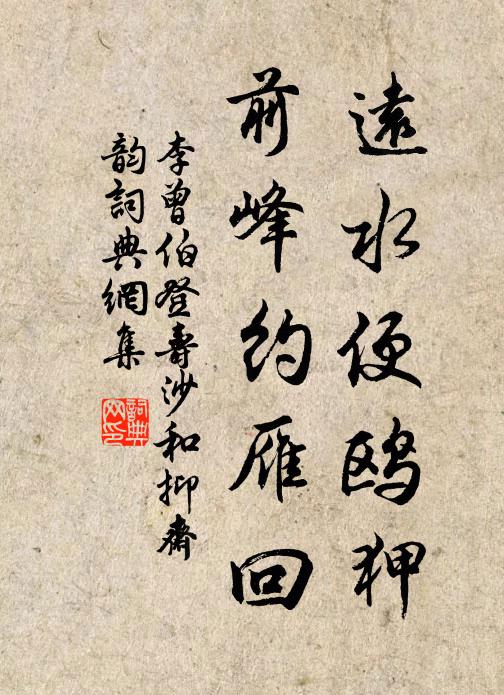 遠水便鷗狎
前峰約雁回
李曾伯登壽沙和抑齋
韵詞典網集
詞典网印